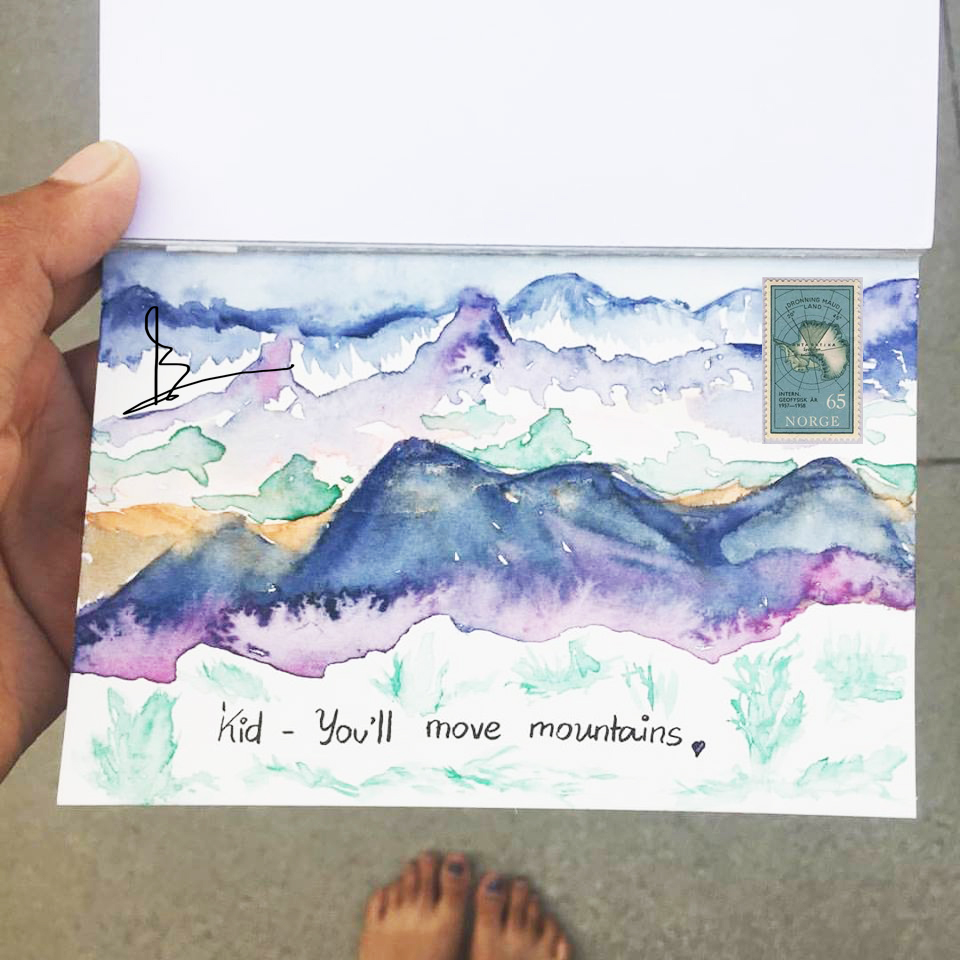 DRONNING MAUD
LAND
ANTARKTIKA
INTERN.
GEOFYSISK ÅR
1957—1958
65
NORGE
Kid - You'll move mountains.